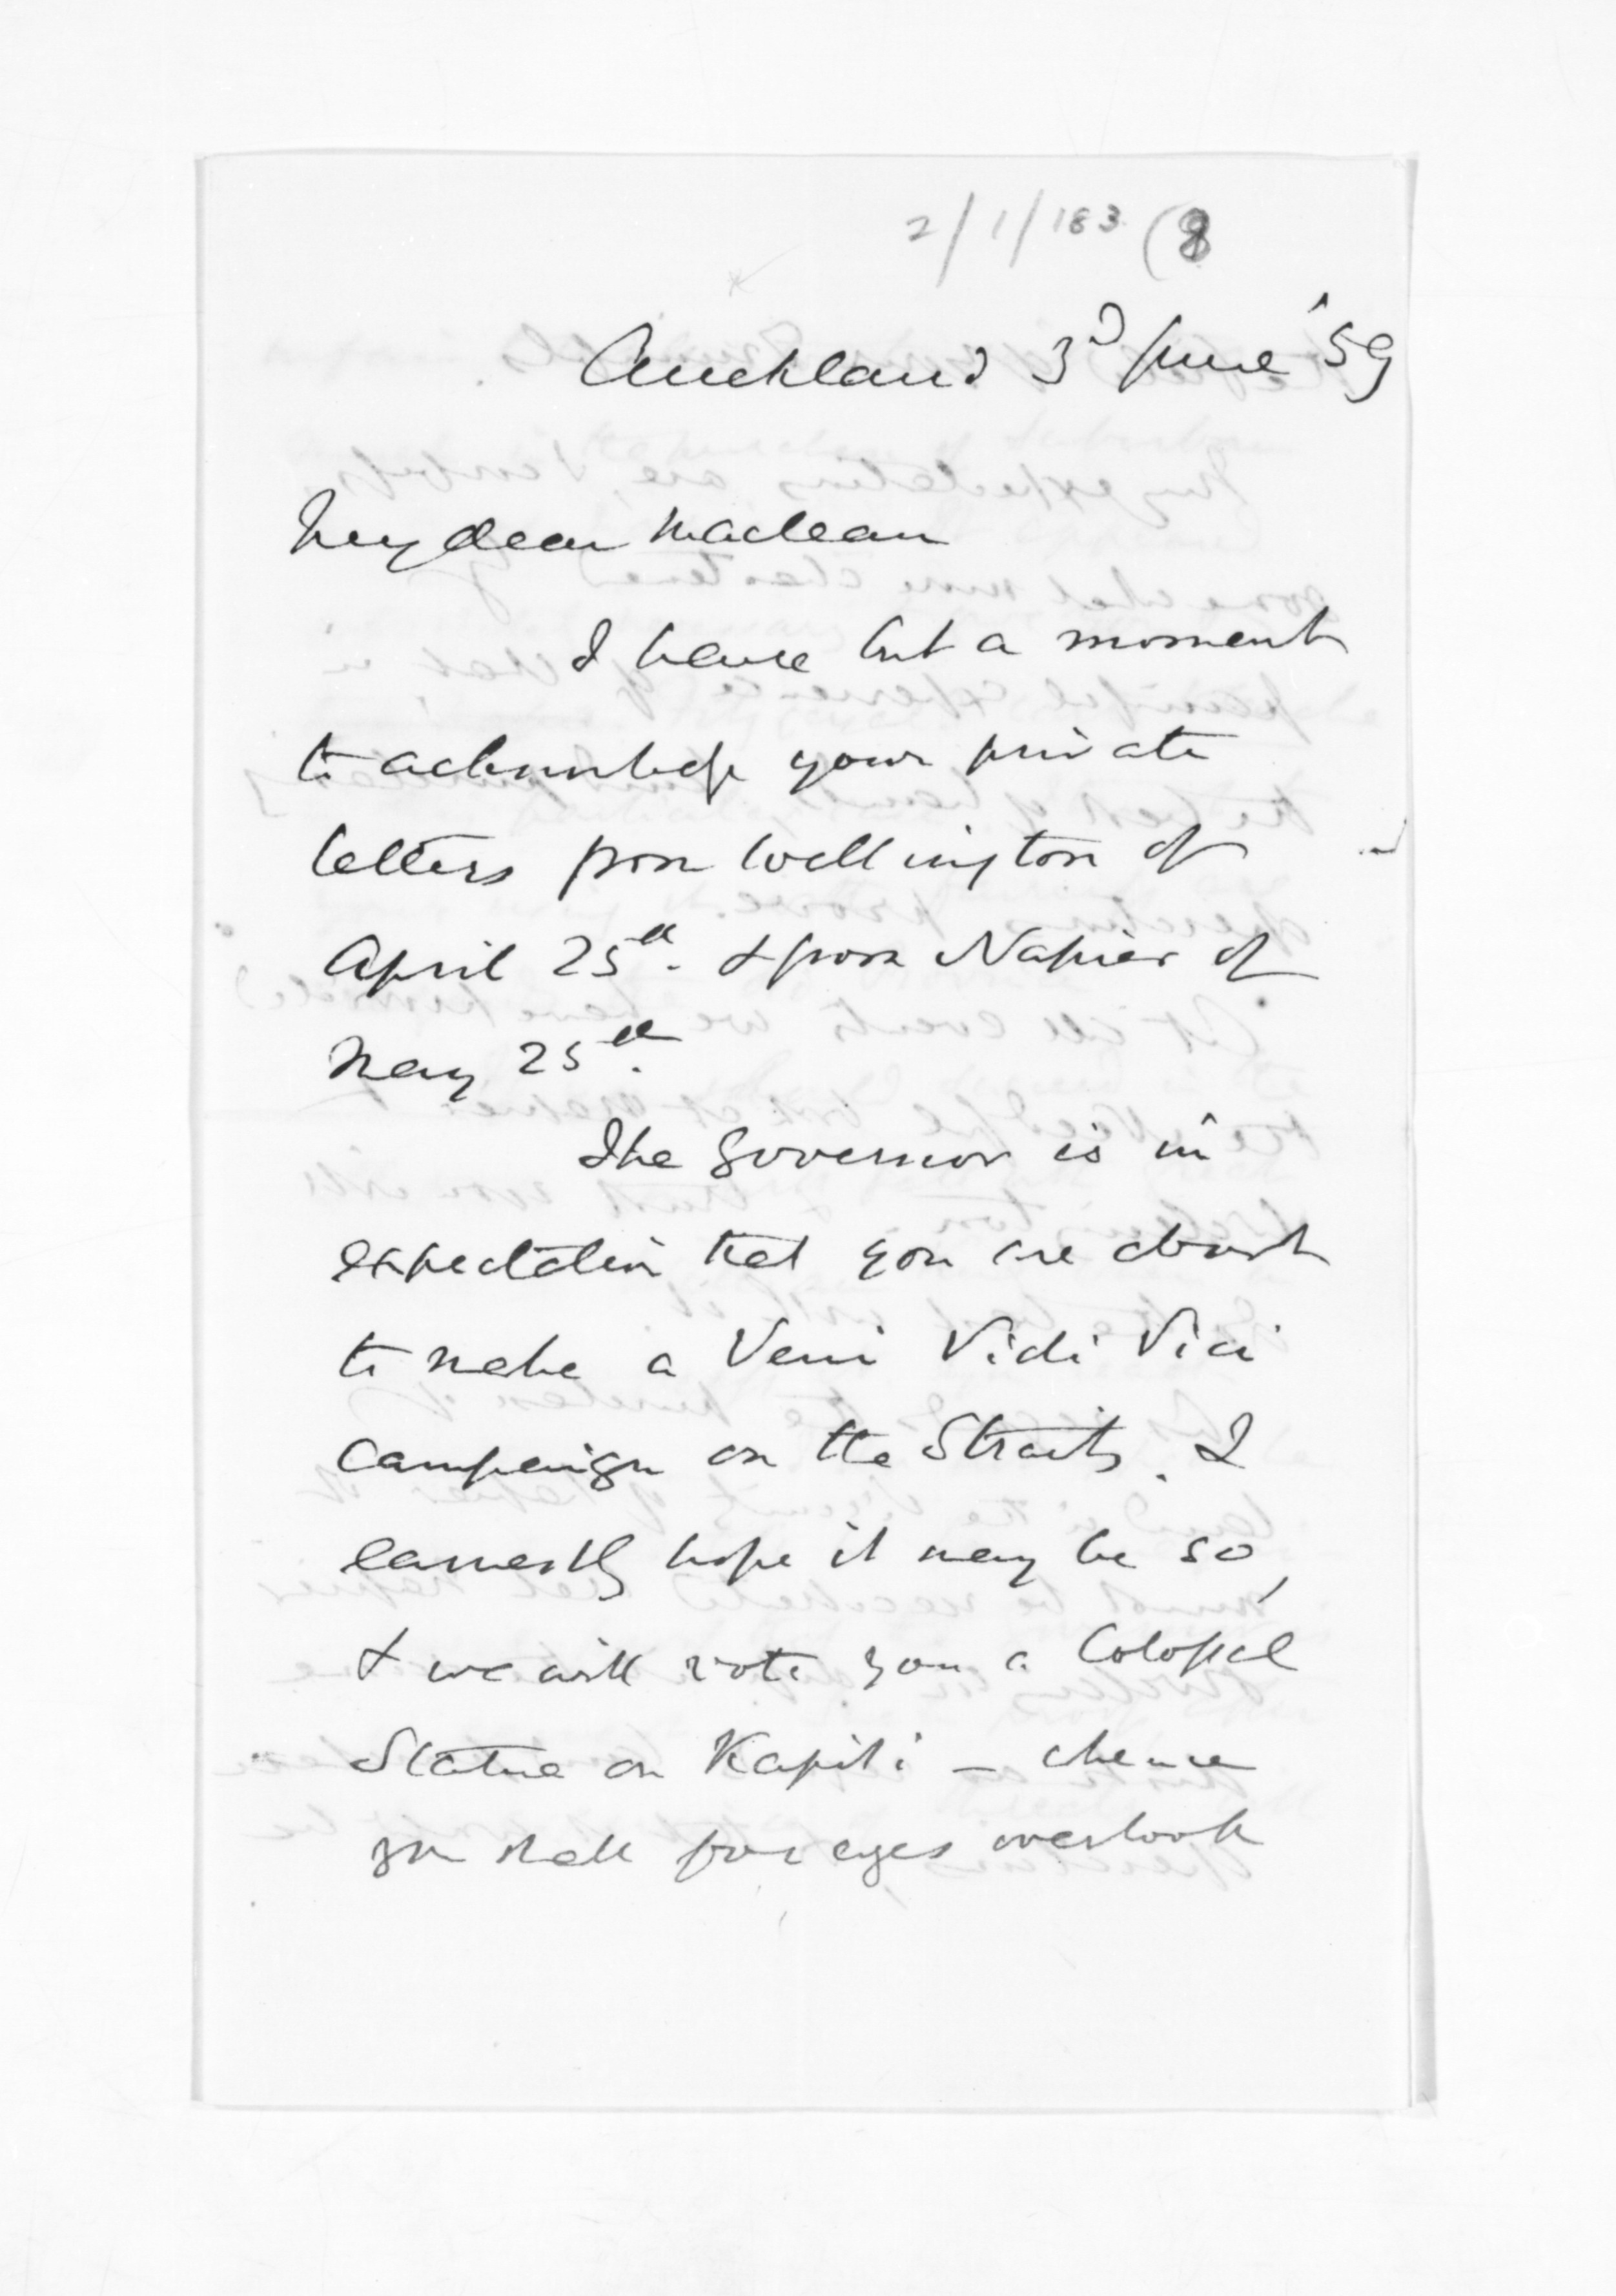 2/1/183 (8
Auckland 3d June '59
My dear Maclean
I have but a moment
to acknowledge your private
letters from Wellington of
April 25th. & from Napier of
May 25th.
The Governor is in
expectation that you are about
to make a Veni Vidi Vici
campaign on the Straits. I
earnestly hope it may be so,
& we will vote you a Colossal
Statue on Kapiti — whence
you shall for ages overlook